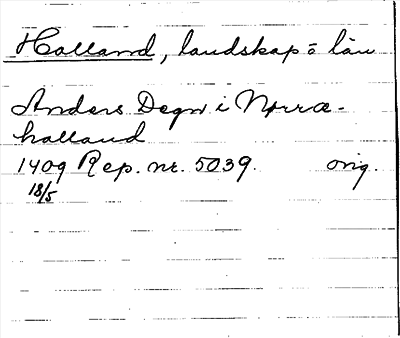 Halland, landskap o län
Anders Degn i Nørræ-
halland
1409 Rep. nr. 5039. orig.
18/5